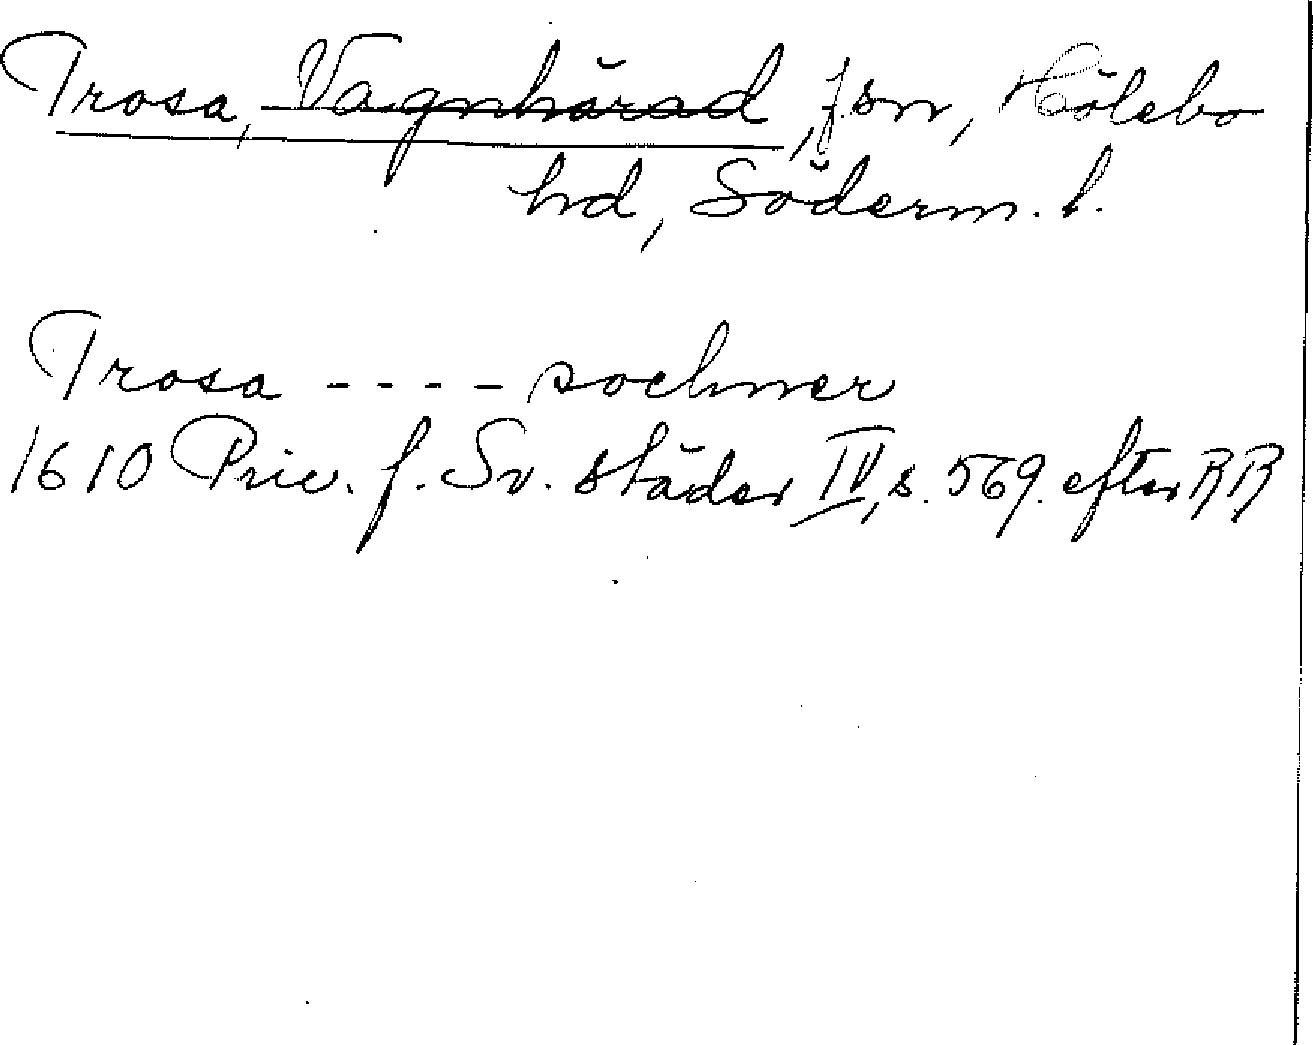 Trosa, Vagnhärad, f. sn, Hölebo
hd, Söderm. l.
Trosa - - - - sochner
1610 Priv. f. Sv. städer IV, s. 569. efter RR